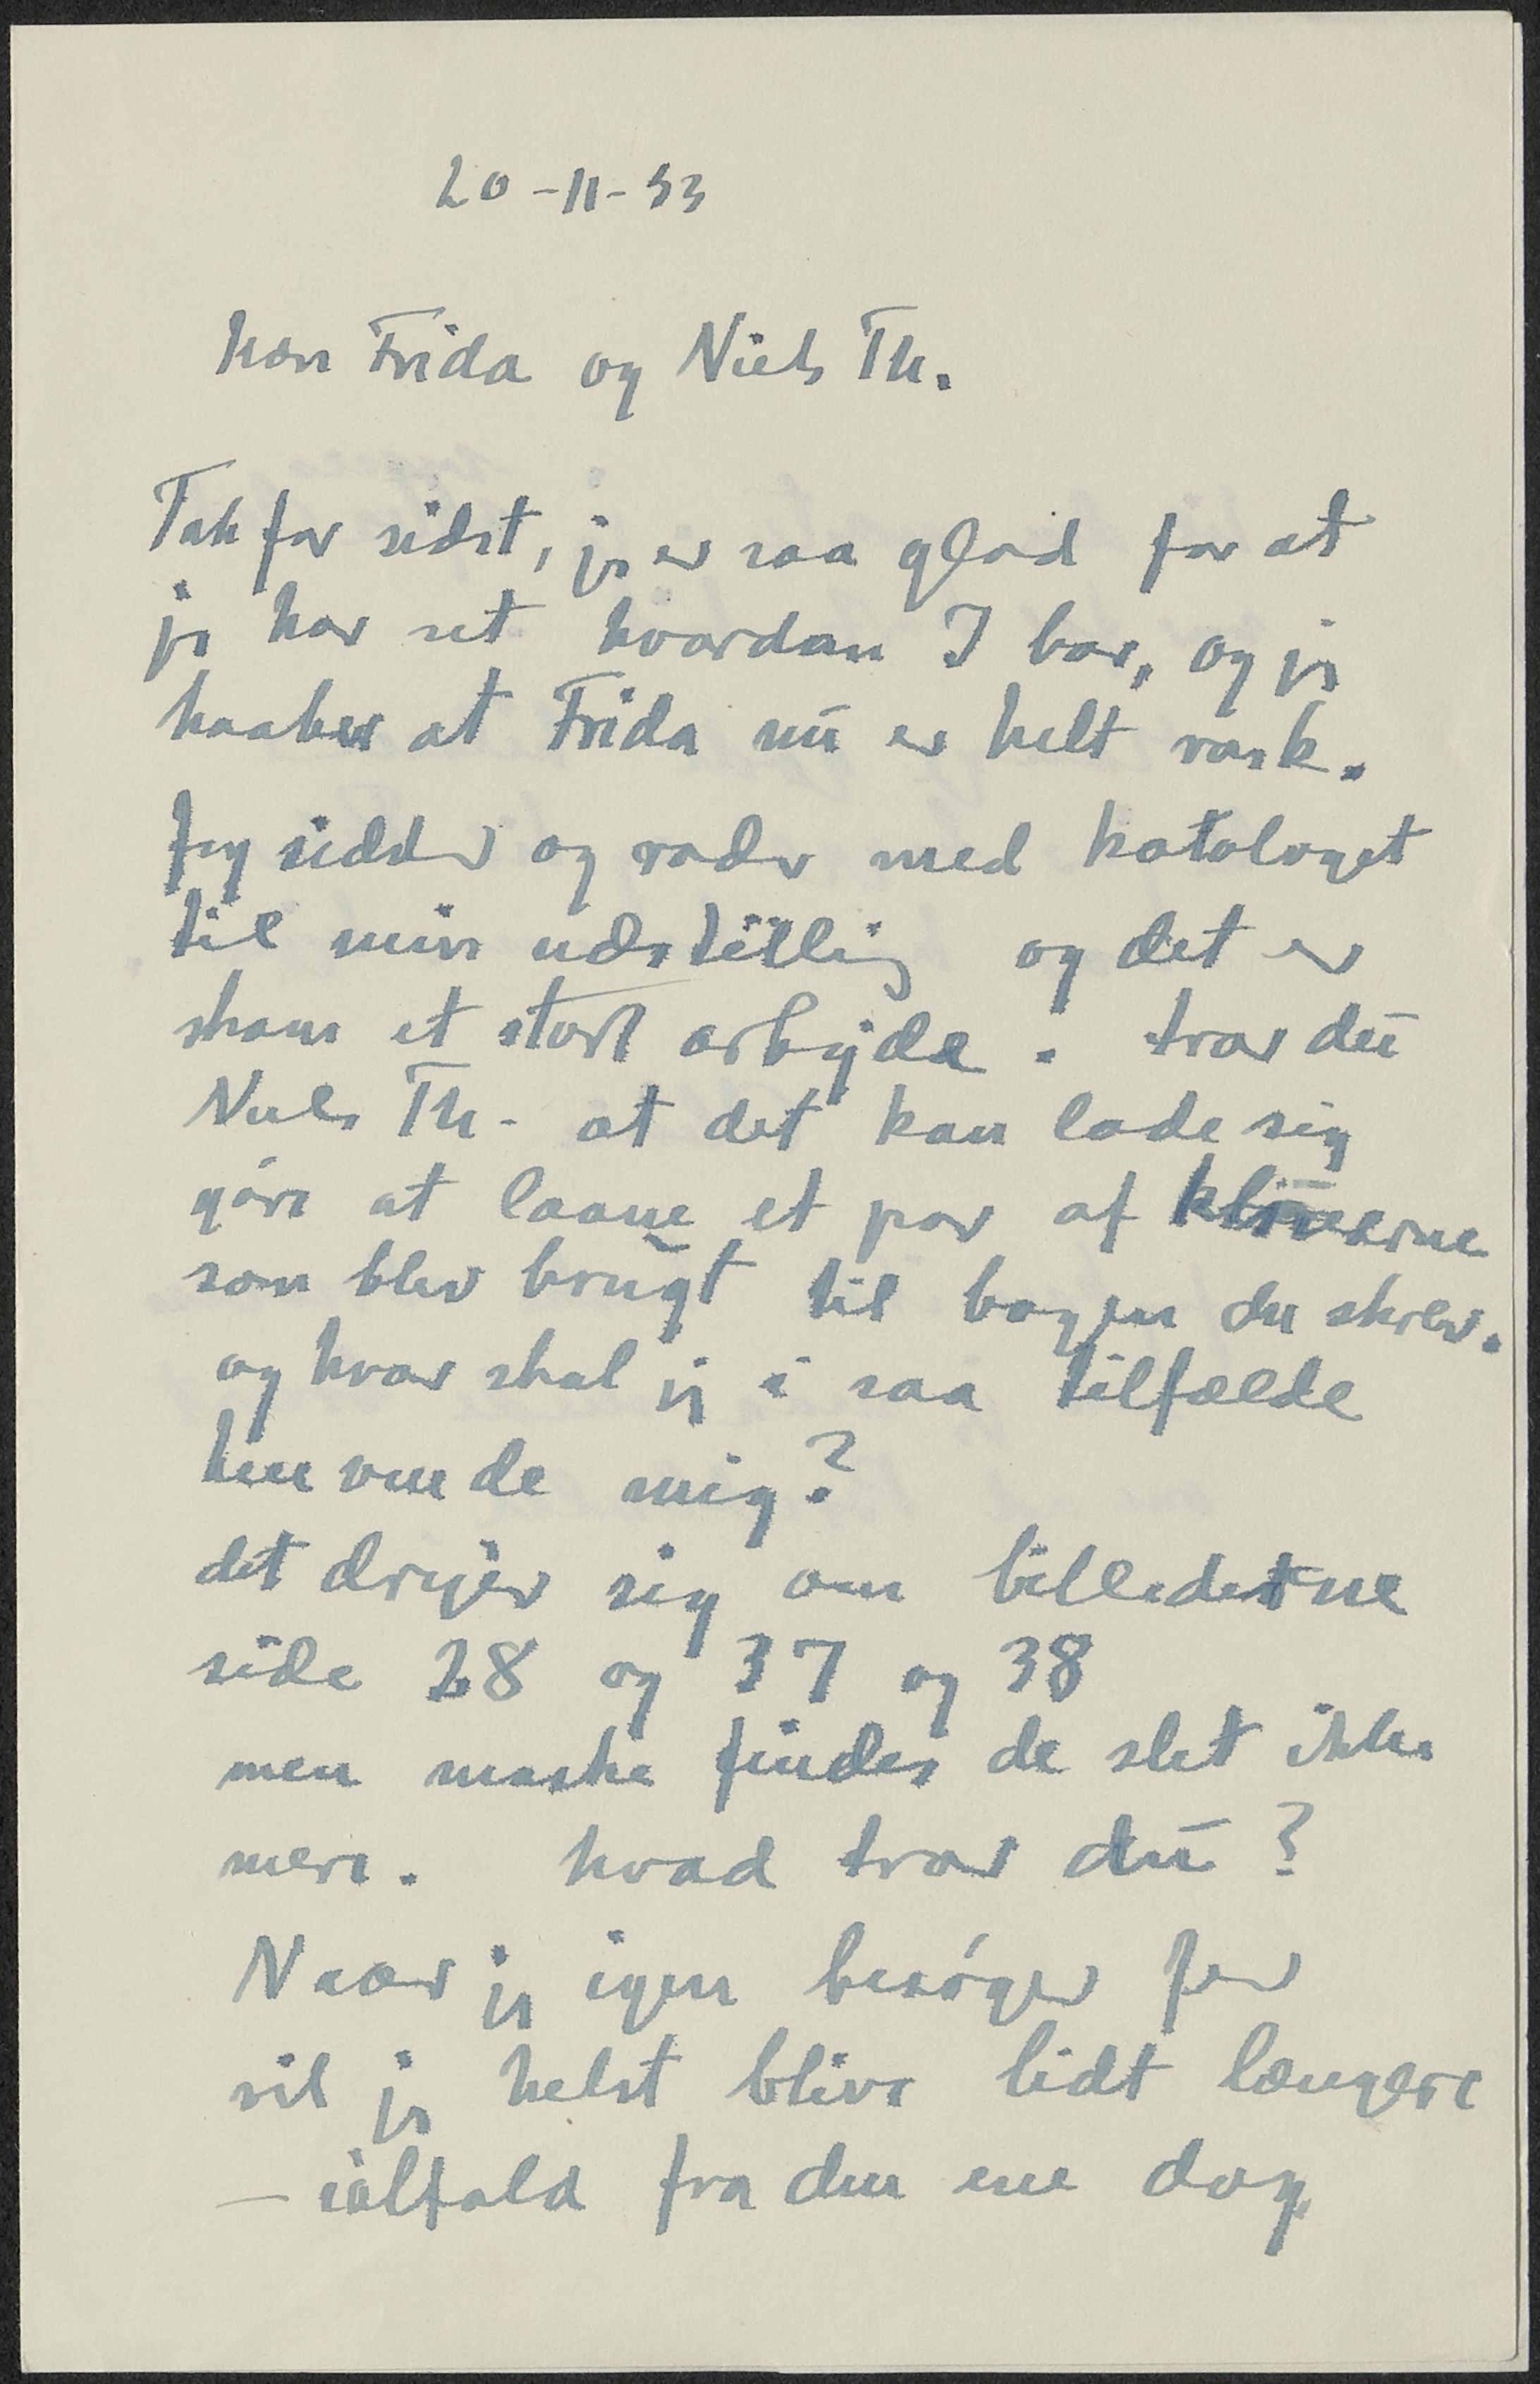 20-11-53
kære Frida og Niels Th.
Tak for sidst, jeg er saa glad for at
jeg har set hvordan I bor, og jeg
haaber at Frida nu er helt rask.
Jeg sidder og roder med kataloget
til min udstilling og det er
skam et stort arbejde. tror du
Niels Th. at det kan lade sig
göre at laane et par af klicerne
som blev brugt til bogen du skrev.
og hvor skal jeg i saa tilfælde
henvende mig?
det drejer sig om billederne
side 28 og 37 og 38
men maske findes de slet ikke
mere. hvad tror du?
Naar jeg igen besöger jer
vil jeg helst blive lidt længere
– ialfald fra den ene dag